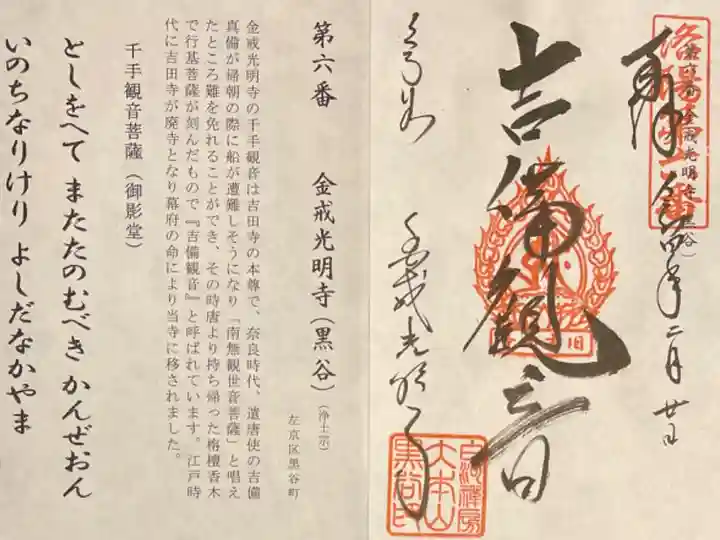 第六番 金戒光明寺(黒谷)
奉拝 令和四年二月廿日
吉備観音
くろ谷 金戒光明寺
白河禅房
大本山
黒谷印
第六番 金戒光明寺(黒谷)(浄土宗)
左京区黒谷町
金戒光明寺の千手観音は吉田寺の本尊で、奈良時代、遣唐使の吉備
真備が帰朝の際に船が遭難しそうになり「南無観世音菩薩」と唱え
たところ難を免れることができ、その時唐より持ち帰った栴檀香木
で行基菩薩が刻んだもので『吉備観音』と呼ばれています。江戸時
代に吉田寺が廃寺となり幕府の命により当寺に移されました。
千手観音菩薩(御影堂)
としをへて またたのむべき かんぜおん
いのちなりけり よしだなかやま